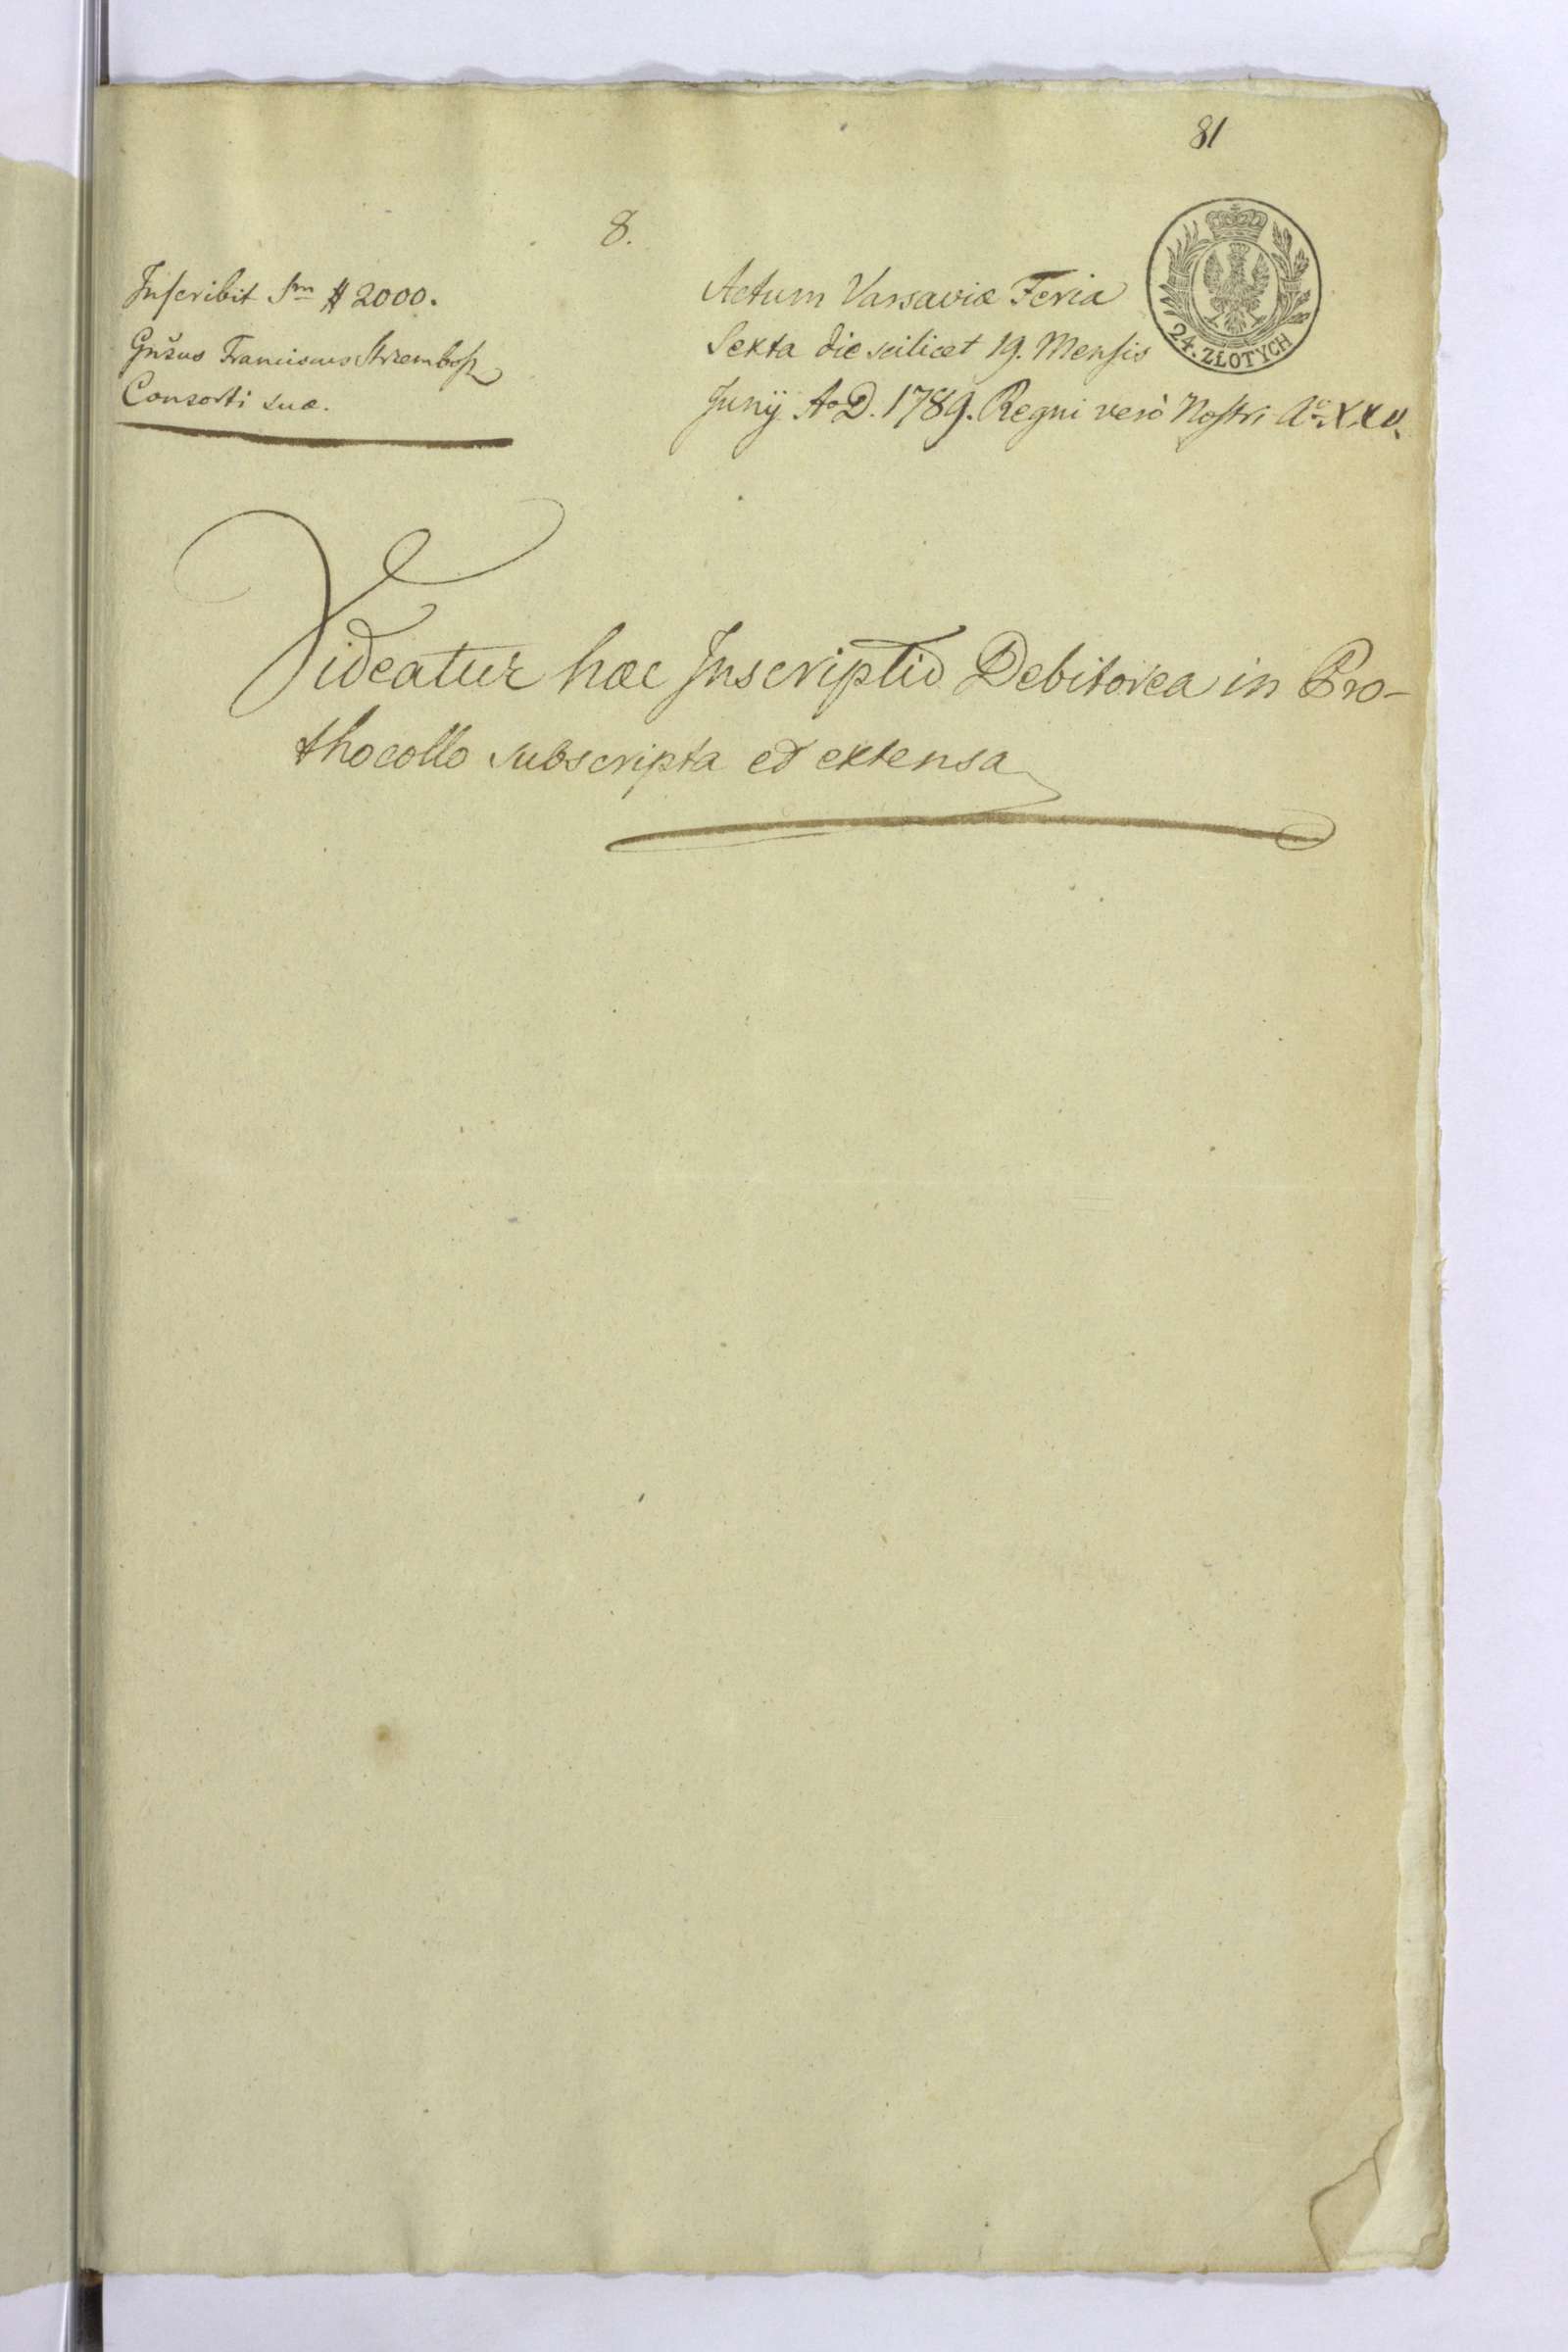 81
8.
Inscribit Sm # 2000.
Gnsus Franciscus Strembosz
Consorti suæ.
Actum Varsaviæ Feria
Sexta die scilicet 19. Mensis
Junÿ Ao D. 1789. Regni verò Nostri Ao XXV.
24. ZŁOTYCH
Videatur hæc Inscriptio Debitorea in Pro-
thocollo subscripta et extensa